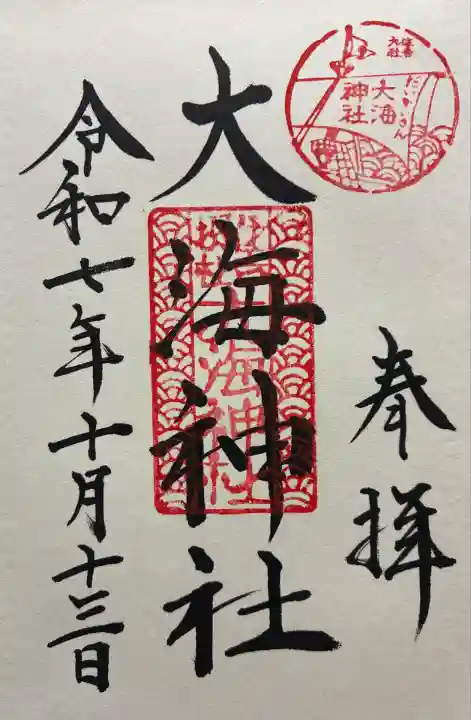 奉拝
住吉
大社
大海
神社
だいかいさん
大海神社
令和七年十月十三日